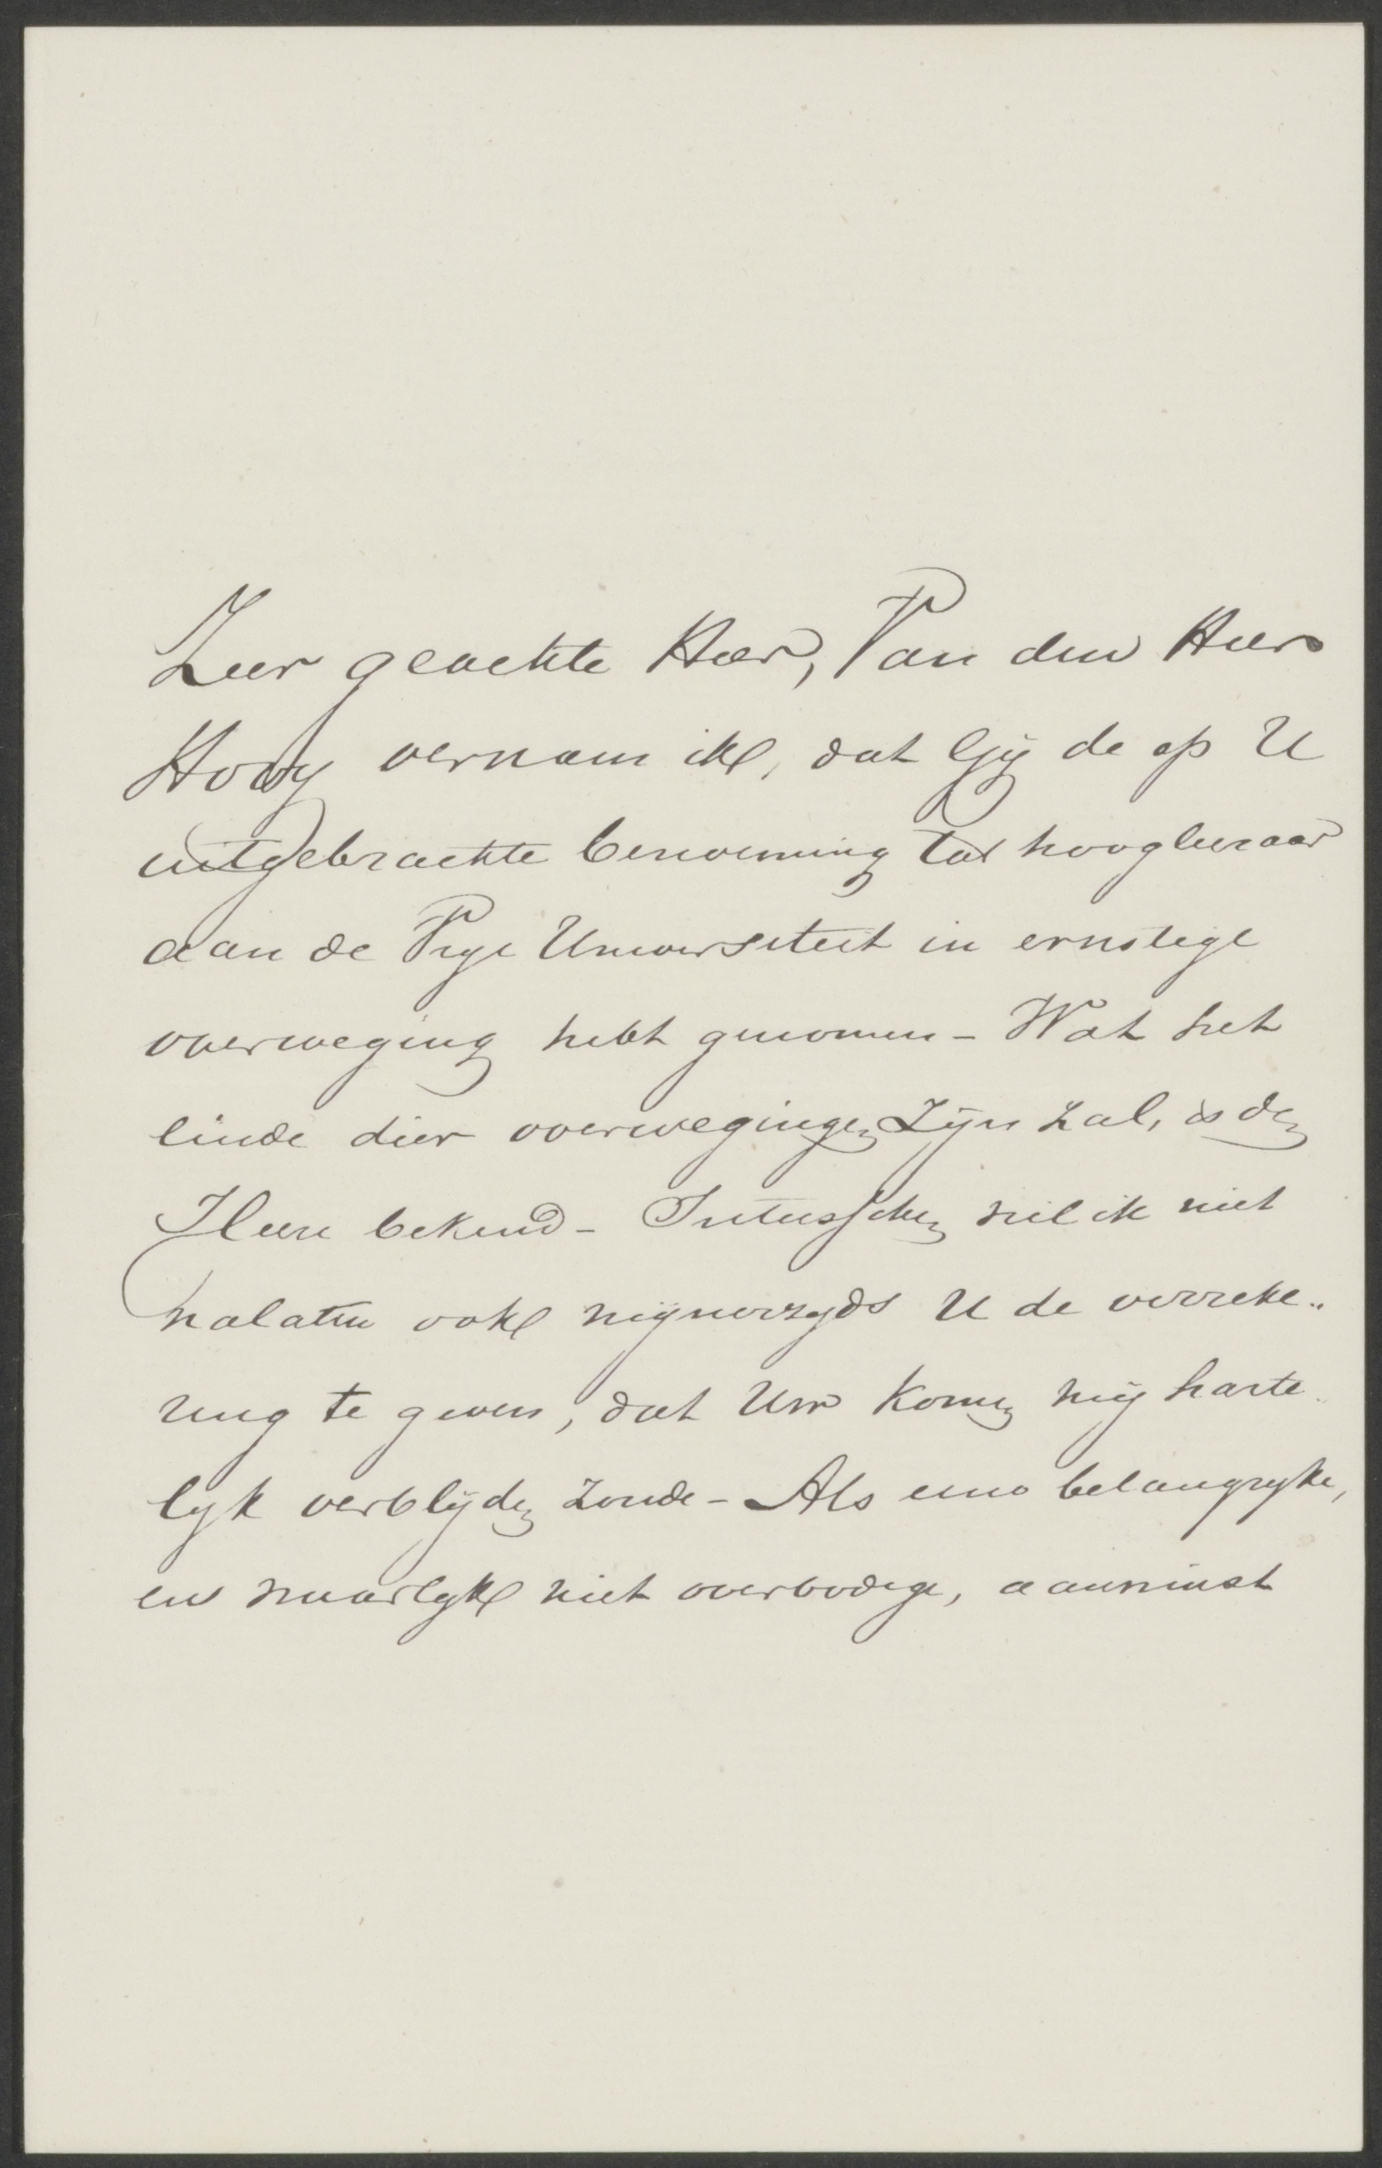 Zeer geachte Heer, Van den Heer
Hovy vernam ik, dat Gij de op U
uitgebrachte benoeming tot hoogleeraar
aan de Vrye Universiteit in ernstige
overweging hebt genomen – Wat het
einde dier overwegingen zijn zal, is den
Heere bekend – Intusschen wil ik niet
nalaten ook mijnerzyds U de verzeke„
ring te geven, dat Uw komen mij harte„
lyk verblijden zoude – Als eene belangryke,
en waarlyk niet overbodige, aanwinst